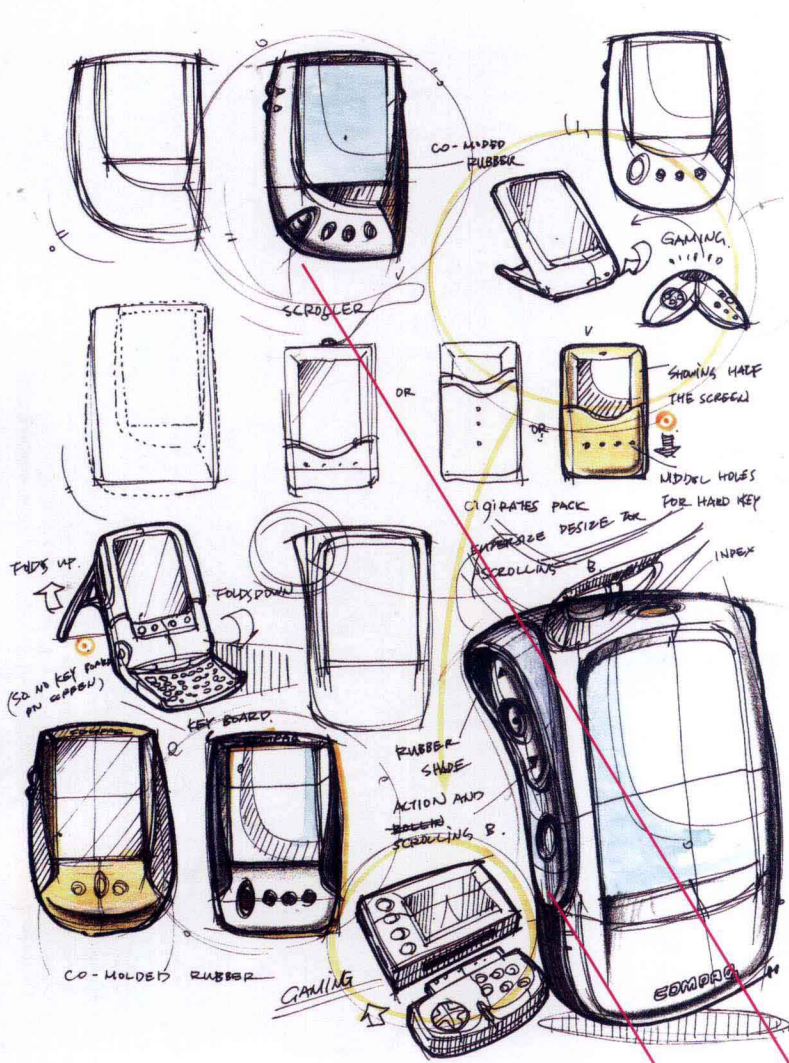 CO-MODED
RUBBER
GAMING.
SCROLLER
OR
OR
SHOWING HALF
THE SCREEN
MIDDEL HOLES
FOR HARD KEY
CIGIRATES PACK
SCROLLING B.
INDEX
FOLDS UP.
FOLDSDOWN
(SO NO KEY BOARD
ON SCREEN)
KEY BOARD.
COMPAQ
RUBBER
SHADE
ACTION AND
SCROLLING B.
CO-MOLDED RUBBER
GAMING
COMPAQ